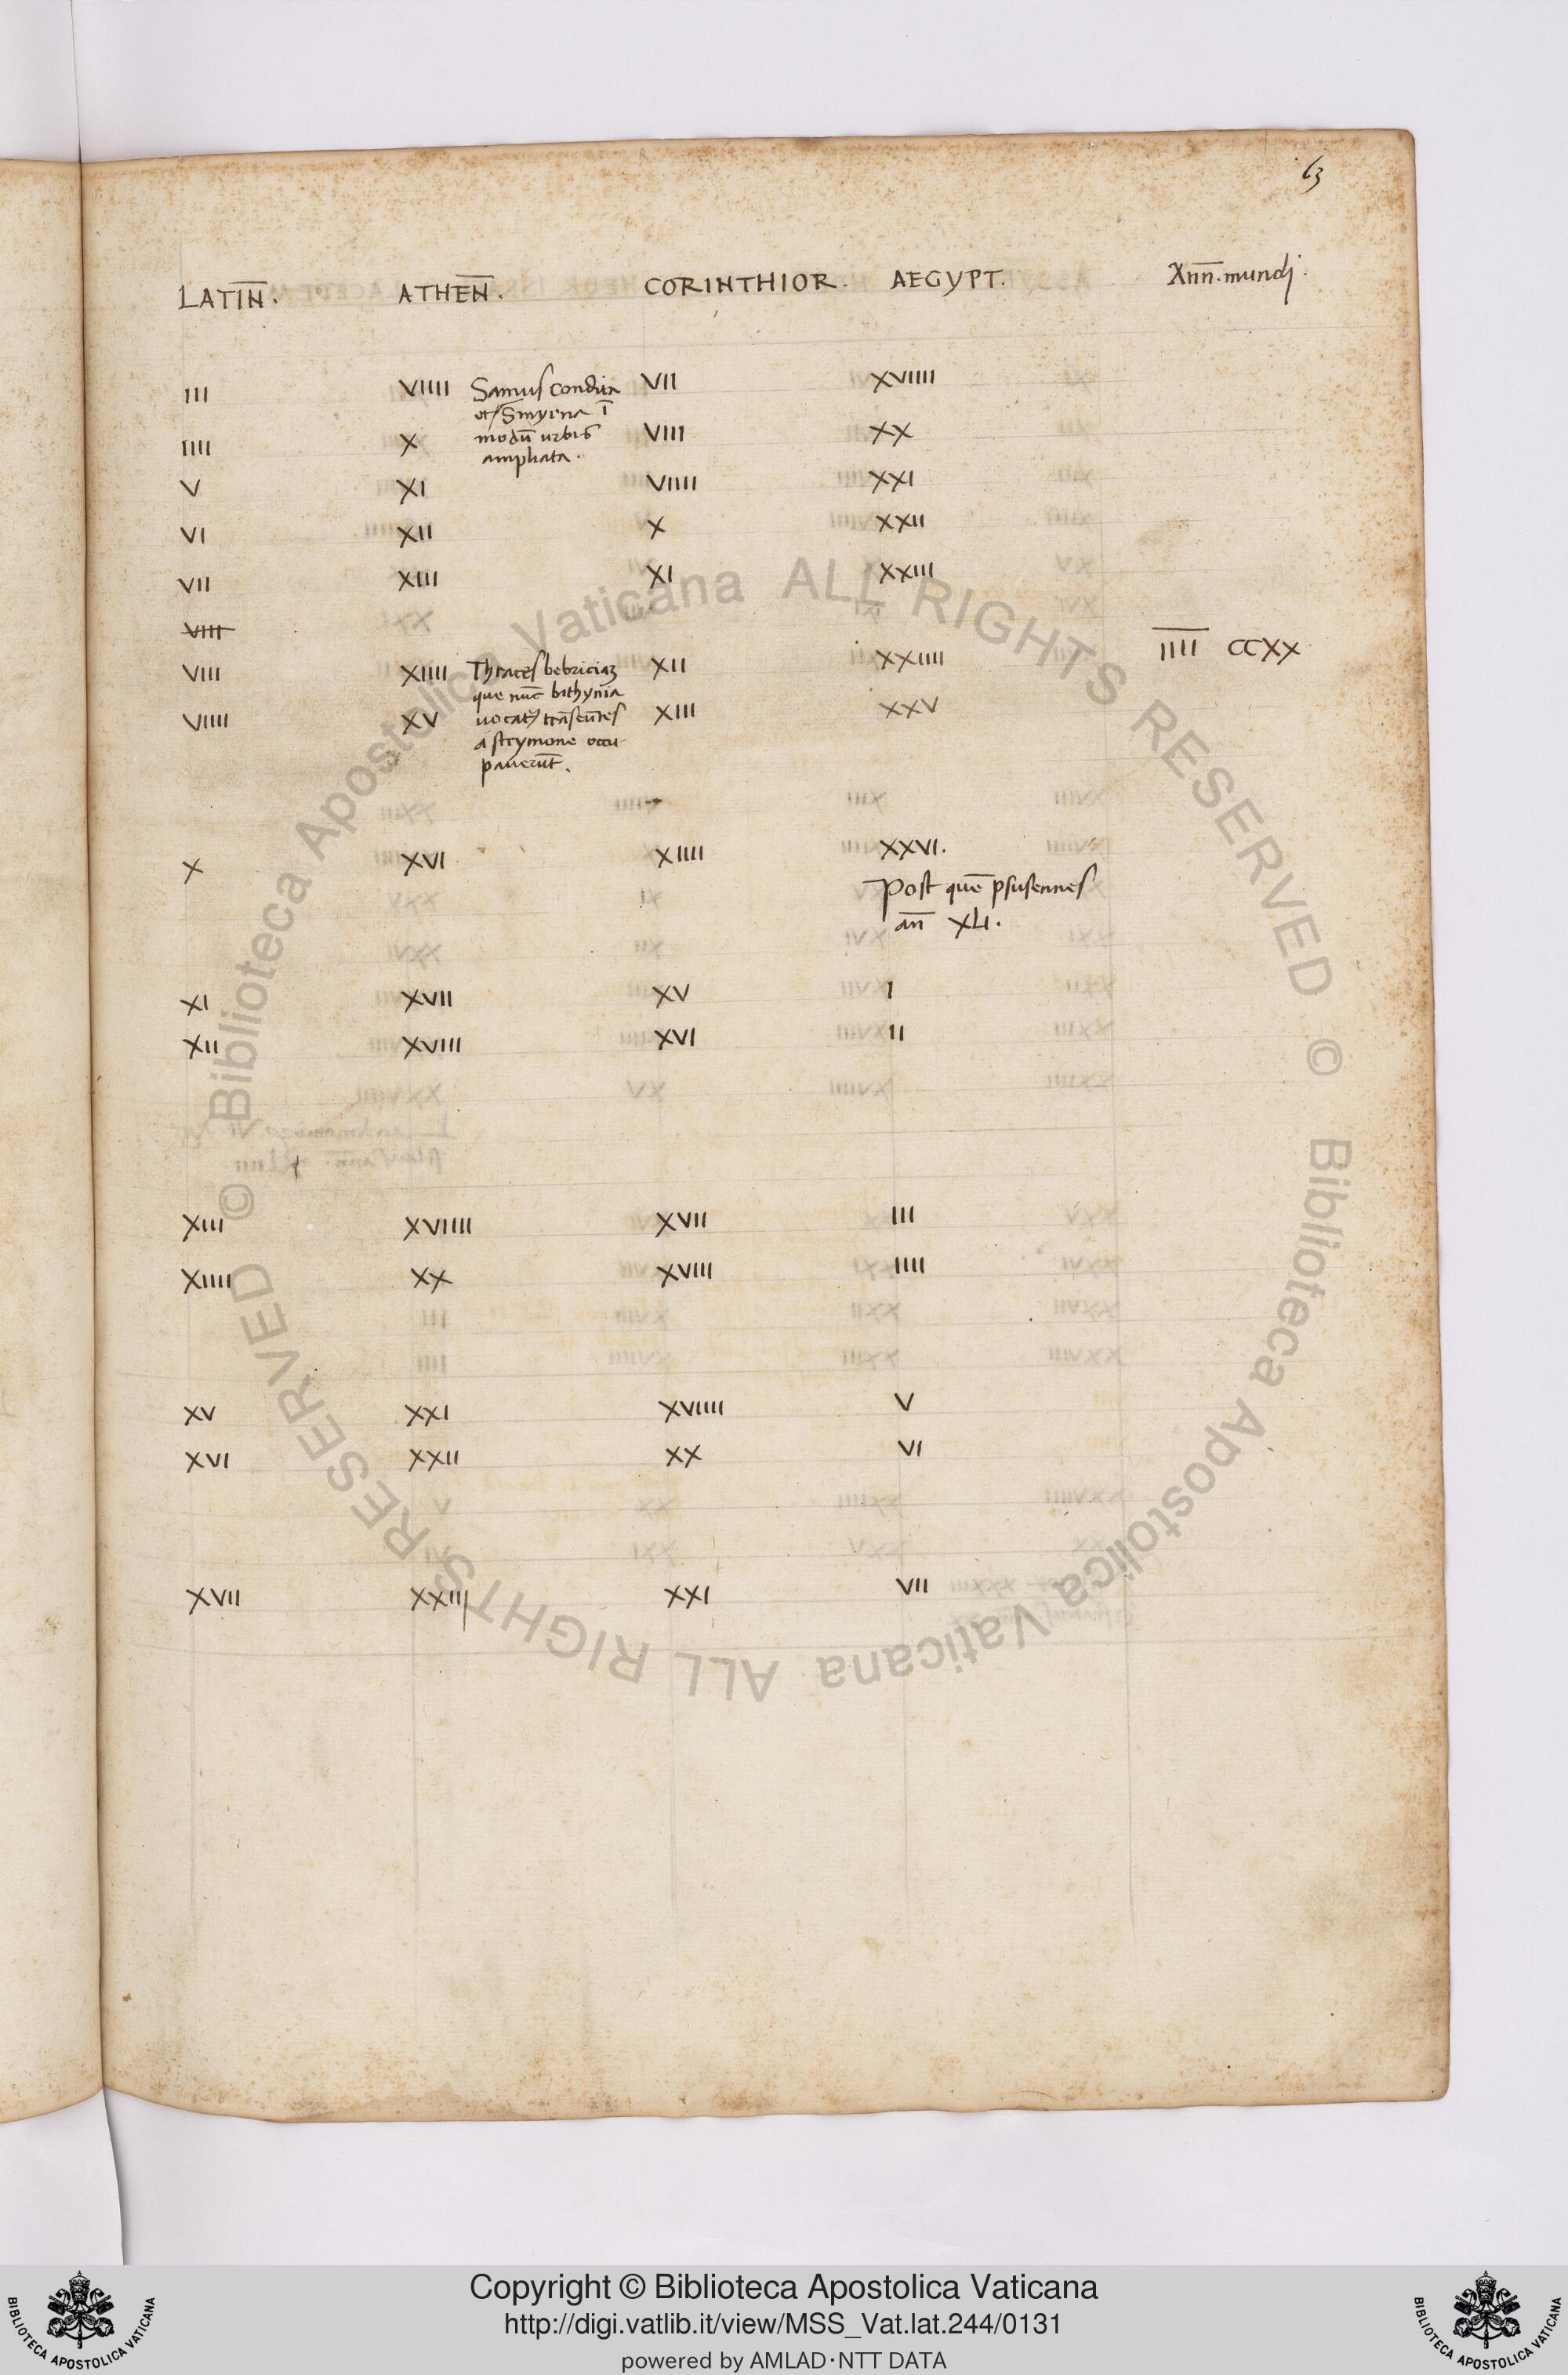 63
LATIN̅. ATHEN̅. CORINTHIOR. AEGYPT. Ann̅. mundj.
III VIIII Samus condita VII XVIIII
et Smyrna ī
IIII X modū urbis VIII XX
ampliata.
V XI VIIII XXI
VI XII X XXII
VII XIII XI XXIII
VIII
I̅I̅I̅I̅ CCXX
VIII XIIII Thraces bebriciā XII XXIIII
que nūc bithynia
VIIII XV uocat᷑ trāseūtes XIII XXV
a strymone occu
pauerūt.
X XVI XIIII XXVI.
Post quē psusennes
an̅ XLI.
XI XVII XV I
XII XVIII XVI II
XIII XVIIII XVII III
XIIII XX XVIII IIII
XV XXI XVIIII V
XVI XXII XX VI
XVII XXIII XXI VII
© Biblioteca Apostolica Vaticana ALL RIGHTS RESERVED © Biblioteca Apostolica Vaticana ALL RIGHTS RESERVED
BIBLIOTECA APOSTOLICA VATICANA
Copyright © Biblioteca Apostolica Vaticana
http://digi.vatlib.it/view/MSS_Vat.lat.244/0131
powered by AMLAD·NTT DATA
BIBLIOTECA APOSTOLICA VATICANA